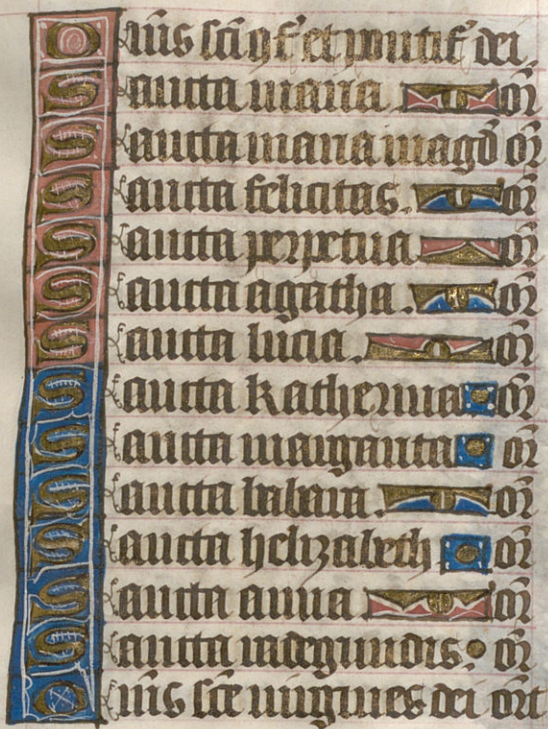 Omīs scī 9f̄ et pontif̄ dei
Sancta maria or̄
Sancta maria magd̄ or̄
Sancta felicitas. or̄
Sancta perpetua or̄
Sancta agatha. or̄
Sancta lucia. or̄
Sancta katherina or̄
Sancta margarita or̄
Sancta or̄
Sancta helizabeth or̄
Sancta anna or̄
Sancta or̄
Omīs scē virgines dei ort